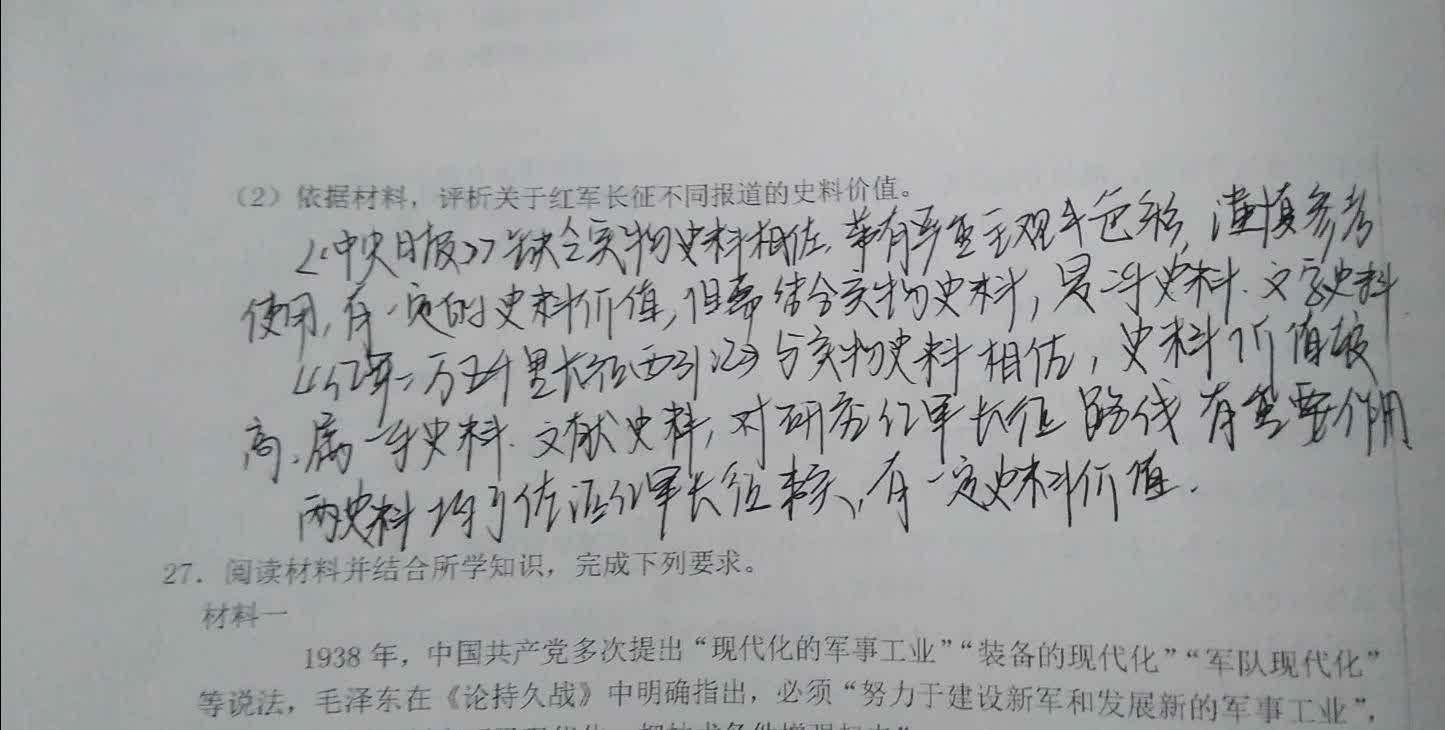 （2）依据材料，评析关于红军长征不同报道的史料价值。
《中央日报》缺乏实物史料相佐，带有严重主观斗色彩，谨慎参考
使用，有一定的史料价值，但需结合实物史料，是二手史料、文字史料
《红军二万五千里长征西引记》与实物史料相佐，史料价值较
高、属一手史料、文献史料，对研究红军长征路线有重要作用
两史料均可佐证红军长征存，有一定史料价值．
27．阅读材料并结合所学知识，完成下列要求。
材料一
1938 年，中国共产党多次提出“现代化的军事工业”“装备的现代化”“军队现代化”
等说法，毛泽东在《论持久战》中明确指出，必须“努力于建设新军和发展新的军事工业”，